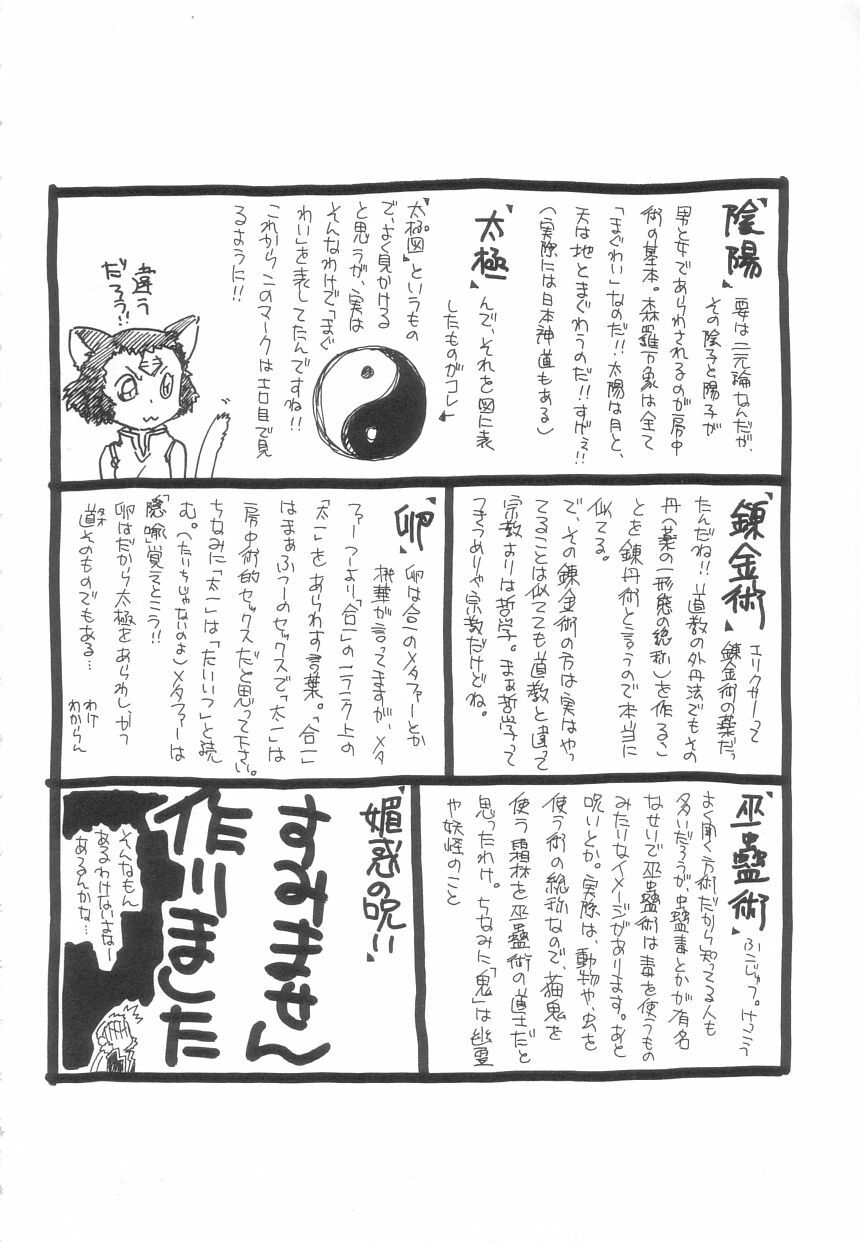 『陰陽』
要は二元論なんだが、
その陰子と陽子が
男と女であらわされるのが房中
術の基本。森羅万象は全て
「まぐわい」なのだ!!太陽は月と、
天は地とまぐわうのだ!!すげぇ!!
(実際には日本神道もある)
『太極』
んで、それを図に表
したものがコレ
『太極図』というもの
で、よく見かける
と思うが、実は
そんなわけで「まぐ
わい」を表してたんですね!!
これからこのマークはエロ目で見
るように!!
違う
だろう!!
『錬金術』
エリクサーって
錬金術の薬だっ
たんだね!!道教の外丹法でもその
丹(薬の一形態の総称)を作るこ
とを錬丹術と言うので本当に
似てる。
で、その錬金術の方は実はやっ
てることは似てても道教と違って
宗教よりは哲学。まぁ哲学って
つきつめりゃ宗教だけどね。
『卵』
卵は合一のメタファーとか
桃華が言ってますが、メタ
ファーつーより「合一」の一ランク上の
「太一」をあらわす言葉。「合一」
はまぁふつーのセックスで「太一」は
房中術的セックスだと思って下さい。
ちなみに「太一」は「たいいつ」と読
む。(たいちじゃないのよ)メタファーは
「隠喩」覚えとこう!!
卵はだから太極をあらわしかつ
道そのものでもある…
わけ
わからん
『巫蠱術』
ふこじゅつ。けっこう
よく聞く方術だから知ってる人も
多いだろうが、蟲毒とかが有名
なせいで巫蠱術は毒を使うもの
みたいなイメージがあります。あと
呪いとか。実際は、動物や、虫を
使う術の総称なので、猫鬼を
使う霜林を巫蠱術の道士だと
思ったわけ。ちなみに「鬼」は幽霊
や妖怪のこと
『媚惑の呪!!』
すみません
作りました
そんなもん
あるわけないよなー
あるんかな…